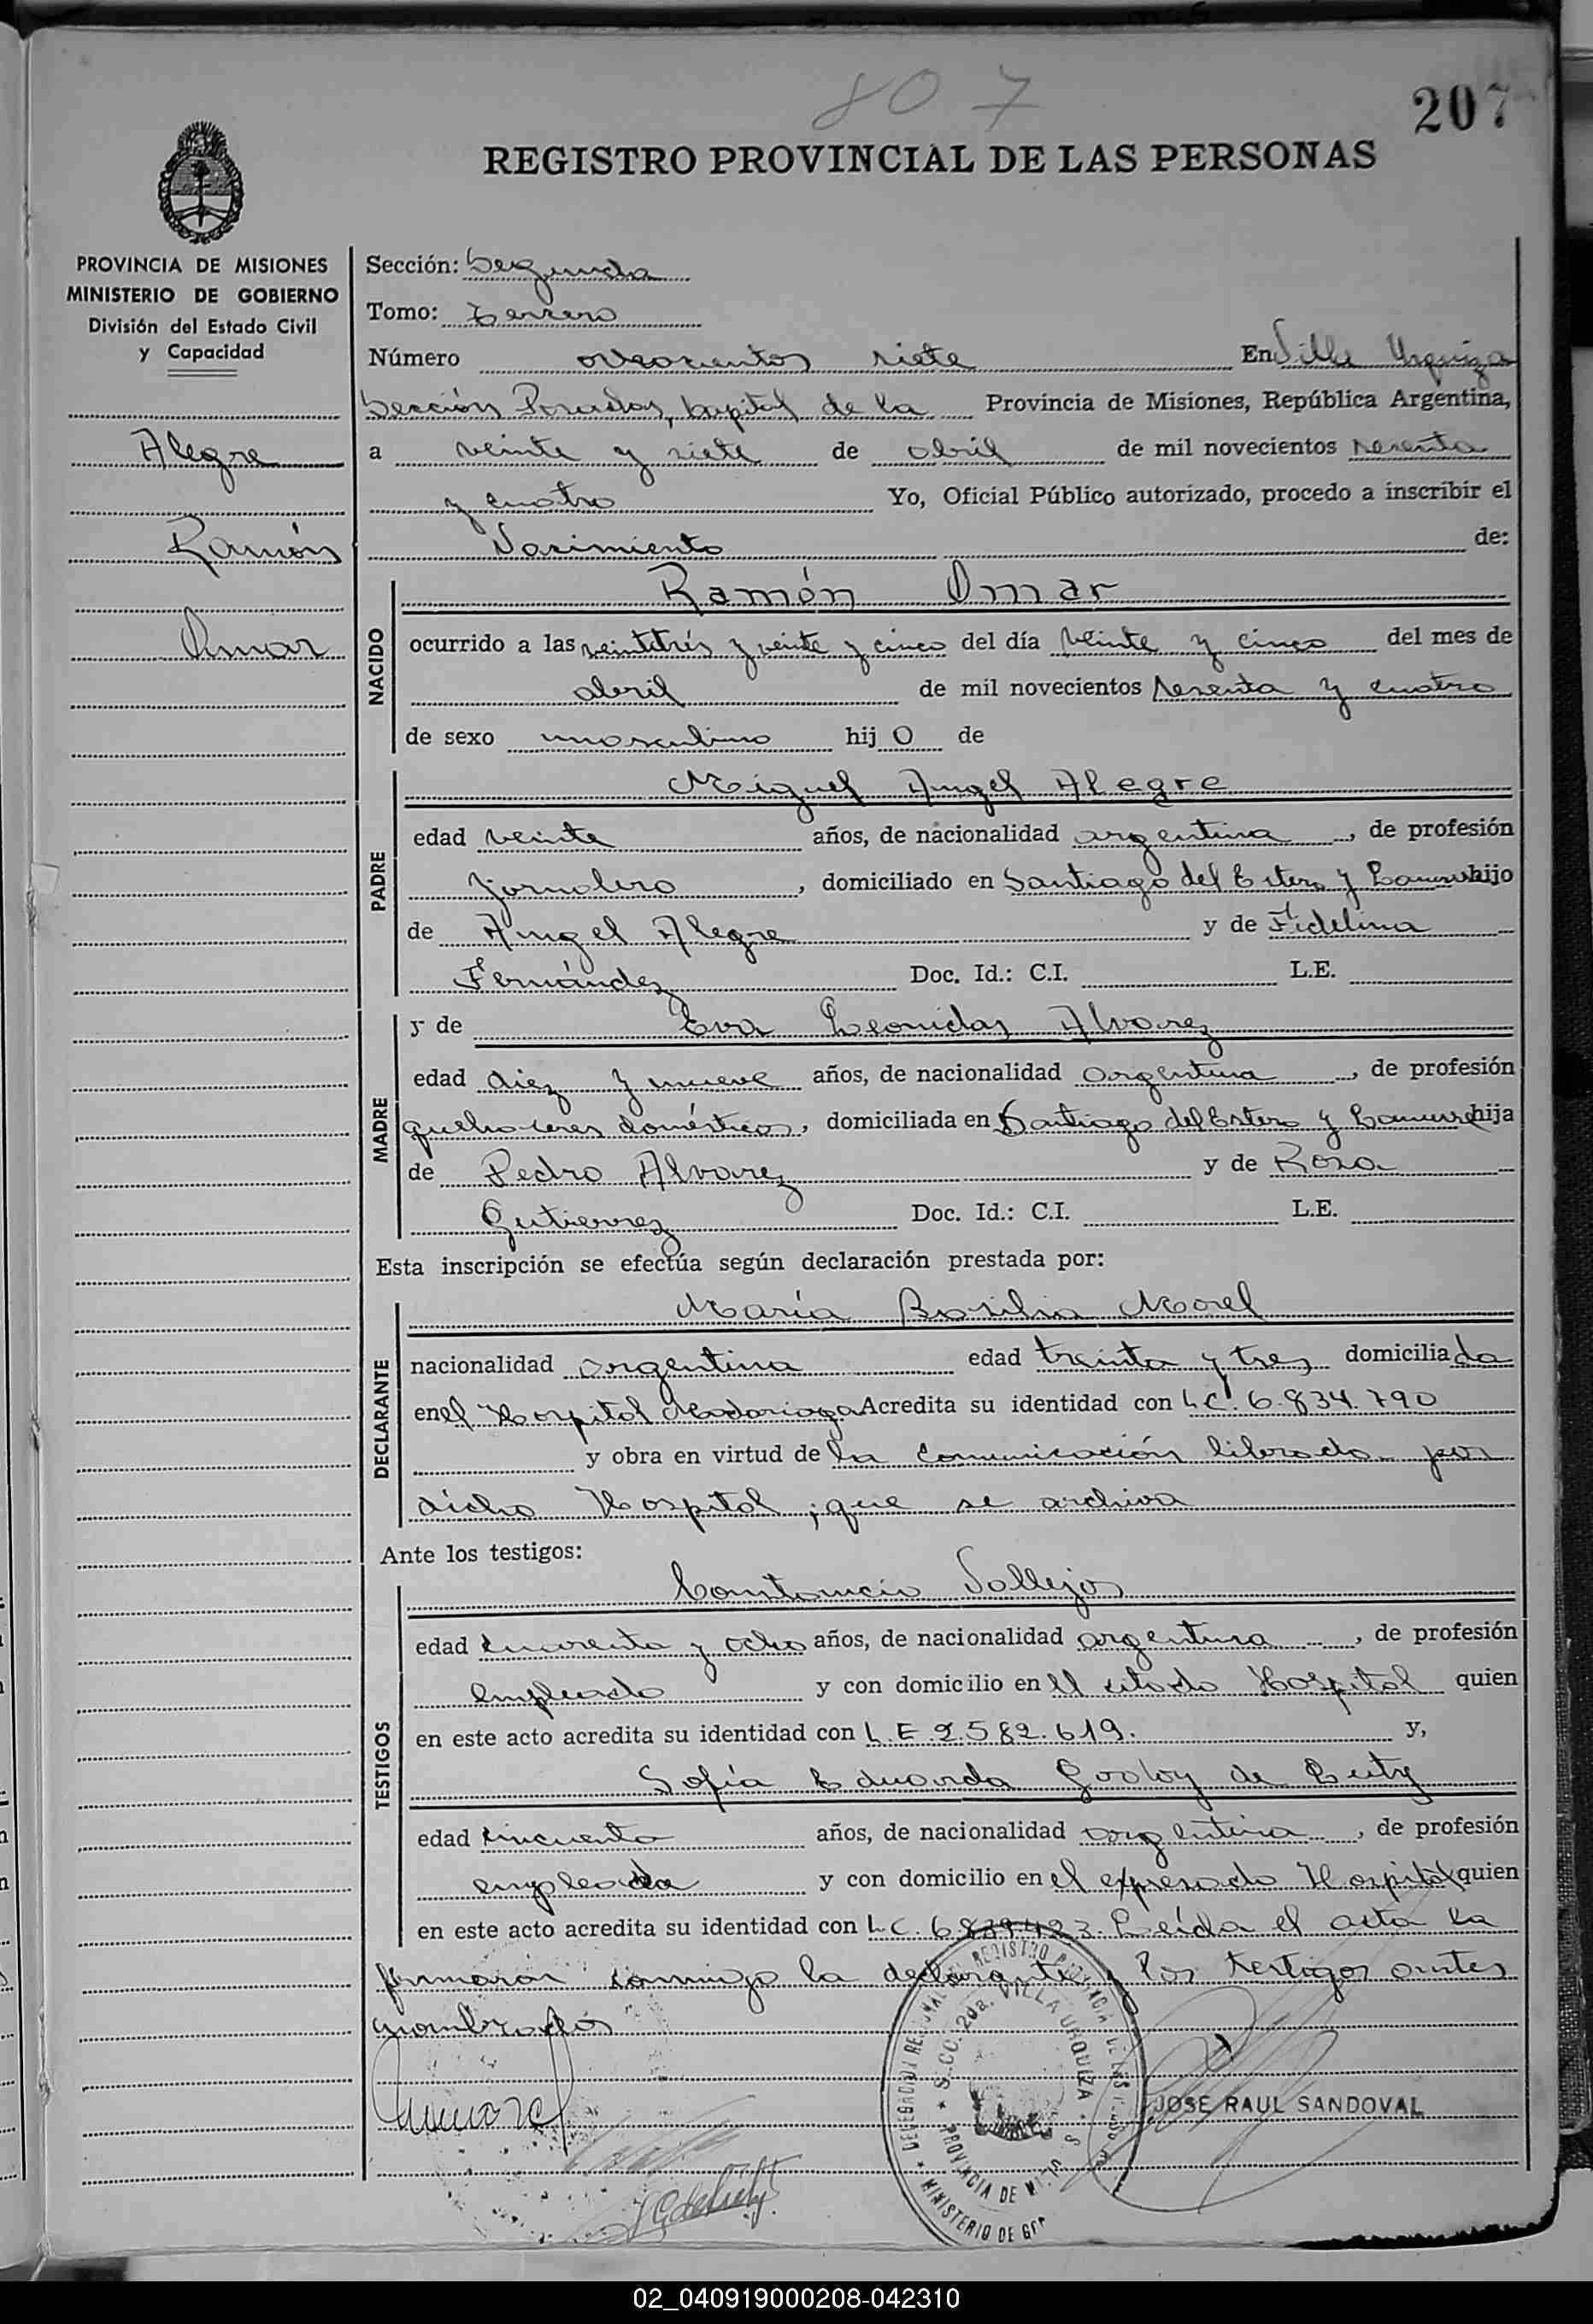 807
207
REGISTRO PROVINCIAL DE LAS PERSONAS
PROVINCIA DE MISIONES
MINISTERIO DE GOBIERNO
División del Estado Civil
y Capacidad
Alegre
Ramón
Omar
Sección: Segunda
Tomo: Tercero
Número ochocientos siete En Villa Urquiza
Sección Posadas, Capital de la Provincia de Misiones, República Argentina,
a veinte y siete de abril de mil novecientos sesenta
y cuatro Yo, Oficial Público autorizado, procedo a inscribir el
Nacimiento de:
NACIDO
Ramón Omar
ocurrido a las veintitrés y veinte y cinco del día veinte y cinco del mes de
abril de mil novecientos sesenta y cuatro
de sexo masculino hijo de
PADRE
Miguel Angel Alegre
edad veinte años, de nacionalidad argentina, de profesión
jornalero, domiciliado en Santiago del Estero y hijo
de Angel Alegre y de Fidelina
Fernández Doc. Id.: C.I. L.E.
MADRE
y de Eva Leonidas Alvarez
edad diez y nueve años, de nacionalidad argentina, de profesión
quehaceres domésticos, domiciliada en Santiago del Estero y hija
de Pedro Alvarez y de Rosa
Gutierrez Doc. Id.: C.I. L.E.
Esta inscripción se efectúa según declaración prestada por:
DECLARANTE
María Basilia Morel
nacionalidad argentina edad treinta y tres domiciliada
en el Hospital Madariaga Acredita su identidad con L.C. 6.834.790
y obra en virtud de la comunicación librada por
dicho Hospital, que se archiva
Ante los testigos:
TESTIGOS
Constancio Vallejos
edad cuarenta y ocho años, de nacionalidad argentina, de profesión
empleado y con domicilio en el citado Hospital quien
en este acto acredita su identidad con L.E. 2.582.619. y,
Sofía Eduarda Godoy de
edad cincuenta años, de nacionalidad argentina, de profesión
empleada y con domicilio en el expresado Hospital quien
en este acto acredita su identidad con L.C. 6.839.423. Leída el acta la
firmarán conmigo la declarante y los testigos antes
nombrados
JOSE RAUL SANDOVAL
SECC. 2da. VILLA URQUIZA
PROVINCIA DE
MINISTERIO DE
02_040919000208-042310